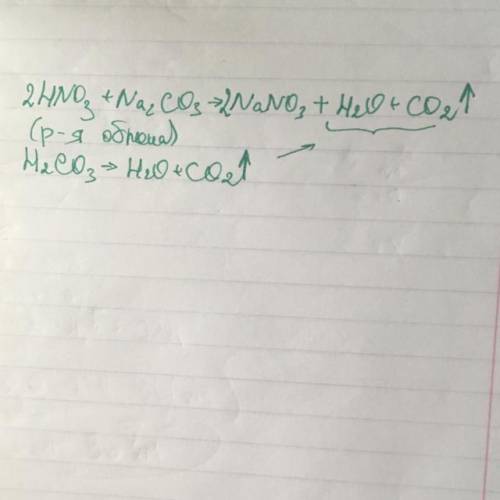 2HNO₃ + Na₂CO₃ → 2NaNO₃ + H₂O + CO₂↑
(р-я обмена)
H₂CO₃ → H₂O + CO₂↑